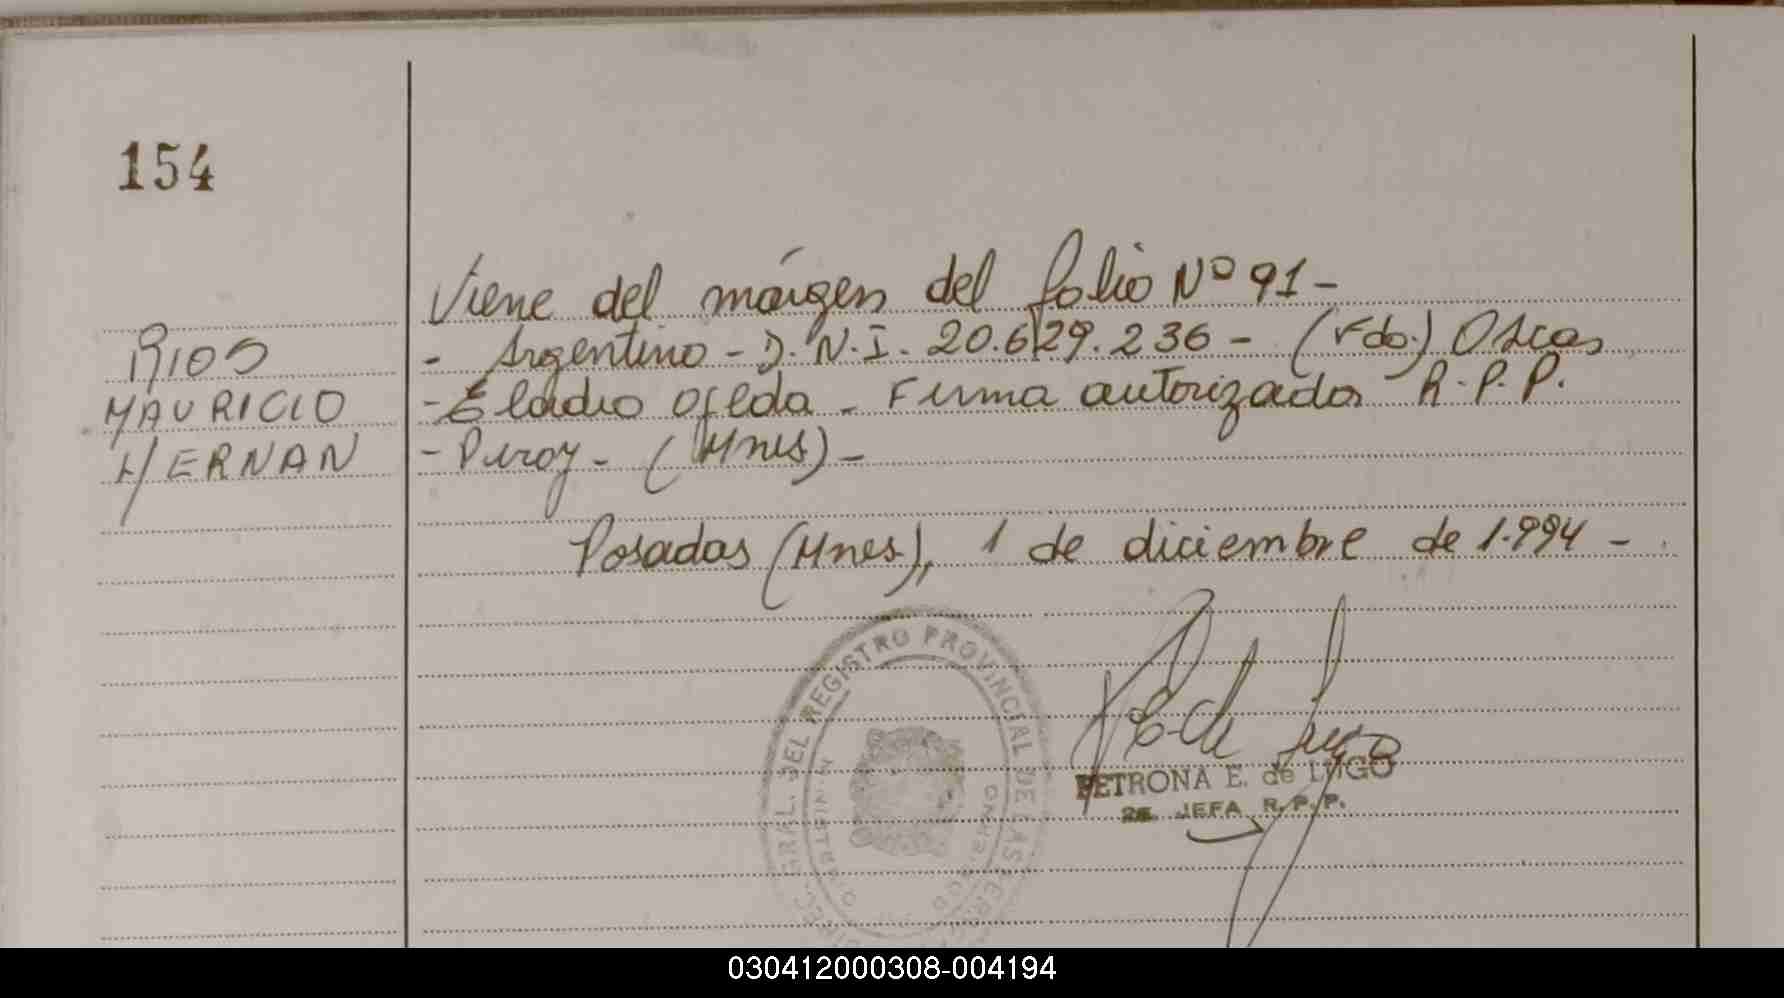 154
Viene del márgen del folio Nº 91-
RIOS
- Argentino - D.N.I. 20.629.236 - (Fdo.) Oscar
MAURICIO
- Eladio Ojeda - Firma autorizada R.P.P.
HERNAN
- Pucroy - (Mnes) -
Posadas (Mnes), 1 de diciembre de 1.994 -
DIREC. GRAL. DEL REGISTRO PROVINCIAL DE LAS PERS
MINISTERIO
GOBIERNO
PETRONA E. de LUGO
2a. JEFA R.P.P.
030412000308-004194